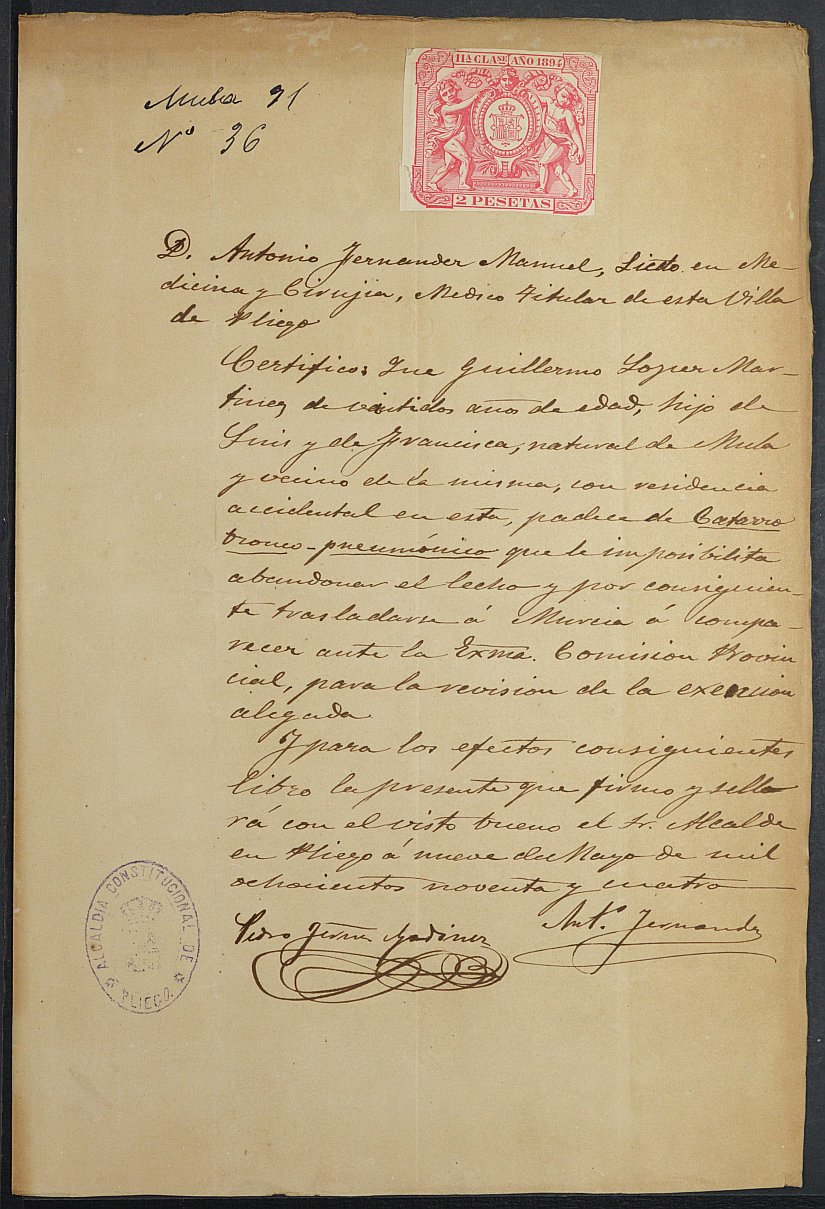 11ª CLASE AÑO 1894
2 PESETAS
Mula 91
Nº 36
D. Antonio Fernandez Manuel, Licdo. en Me-
dicina y Cirujia, Medico Titular de esta Villa
de Pliego
Certifico: Que Guillermo Lopez Mar-
tinez de veintidos años de edad, hijo de
Luis y de Francisca, natural de Mula
y vecino de la misma, con residencia
accidental en esta, padece de Catarro
bronco-pneumónico que le imposibilita
abandonar el lecho y por consiguien-
te trasladarse á Murcia á compa-
recer ante la Exma. Comision Provin
cial, para la revision de la exencion
alegada
Y para los efectos consiguientes
libro la presente que firmo y sella
rá con el visto bueno el Sr. Alcalde
en Pliego á nueve de Mayo de mil
ochocientos noventa y cuatro
Antº. Fernandez
Pedro
ALCALDIA CONSTITUCIONAL DE
PLIEGO.